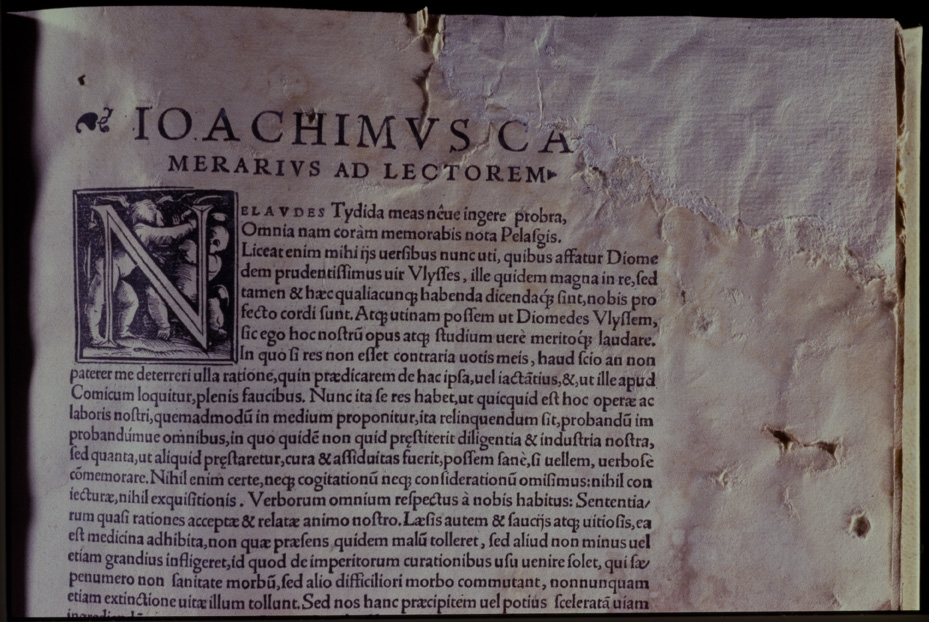 ❧ IOACHIMVS CA
MERARIVS AD LECTOREM
NE LAVDES Tydida meas nêue ingere probra,
Omnia nam coràm memorabis nota Pelasgis.
Liceat enim mihi ijs uersibus nunc uti, quibus affatur Diome
dem prudentissimus uir Vlysses, ille quidem magna in re, sed
tamen & hæc qualiacunq; habenda dicendaq́; sint, nobis pro
fecto cordi sunt. Atq; utinam possem ut Diomedes Vlyssem,
sic ego hoc nostrũ opus atq; studium uerè meritoq́; laudare.
In quo si res non esset contraria uotis meis, haud scio an non
paterer me deterreri ulla ratione, quin prædicarem de hac ipsa, uel iactãtius, &, ut ille apud
Comicum loquitur, plenis faucibus. Nunc ita se res habet, ut quicquid est hoc operæ ac
laboris nostri, quemadmodũ in medium proponitur, ita relinquendum sit, probandũ im
probandúmue omnibus, in quo quidẽ non quid pręstiterit diligentia & industria nostra,
sed quanta, ut aliquid pręstaretur, cura & assiduitas fuerit, possem sanè, si uellem, uerbosè
cõmemorare. Nihil enim certe, neq; cogitationũ neq; considerationũ omisimus: nihil con
iecturæ, nihil exquisitionis. Verborum omnium respectus à nobis habitus: Sententia/
rum quasi rationes acceptæ & relatæ animo nostro. Læsis autem & saucijs atq; uitiosis, ea
est medicina adhibita, non quæ præsens quidem malũ tolleret, sed aliud non minus uel
etiam grandius infligeret, id quod de imperitorum curationibus usu uenire solet, qui sæ/
penumero non sanitate morbũ, sed alio difficiliori morbo commutant, nonnunquam
etiam extinctione uitæ illum tollunt. Sed nos hanc præcipitem uel potius sceleratã uiam